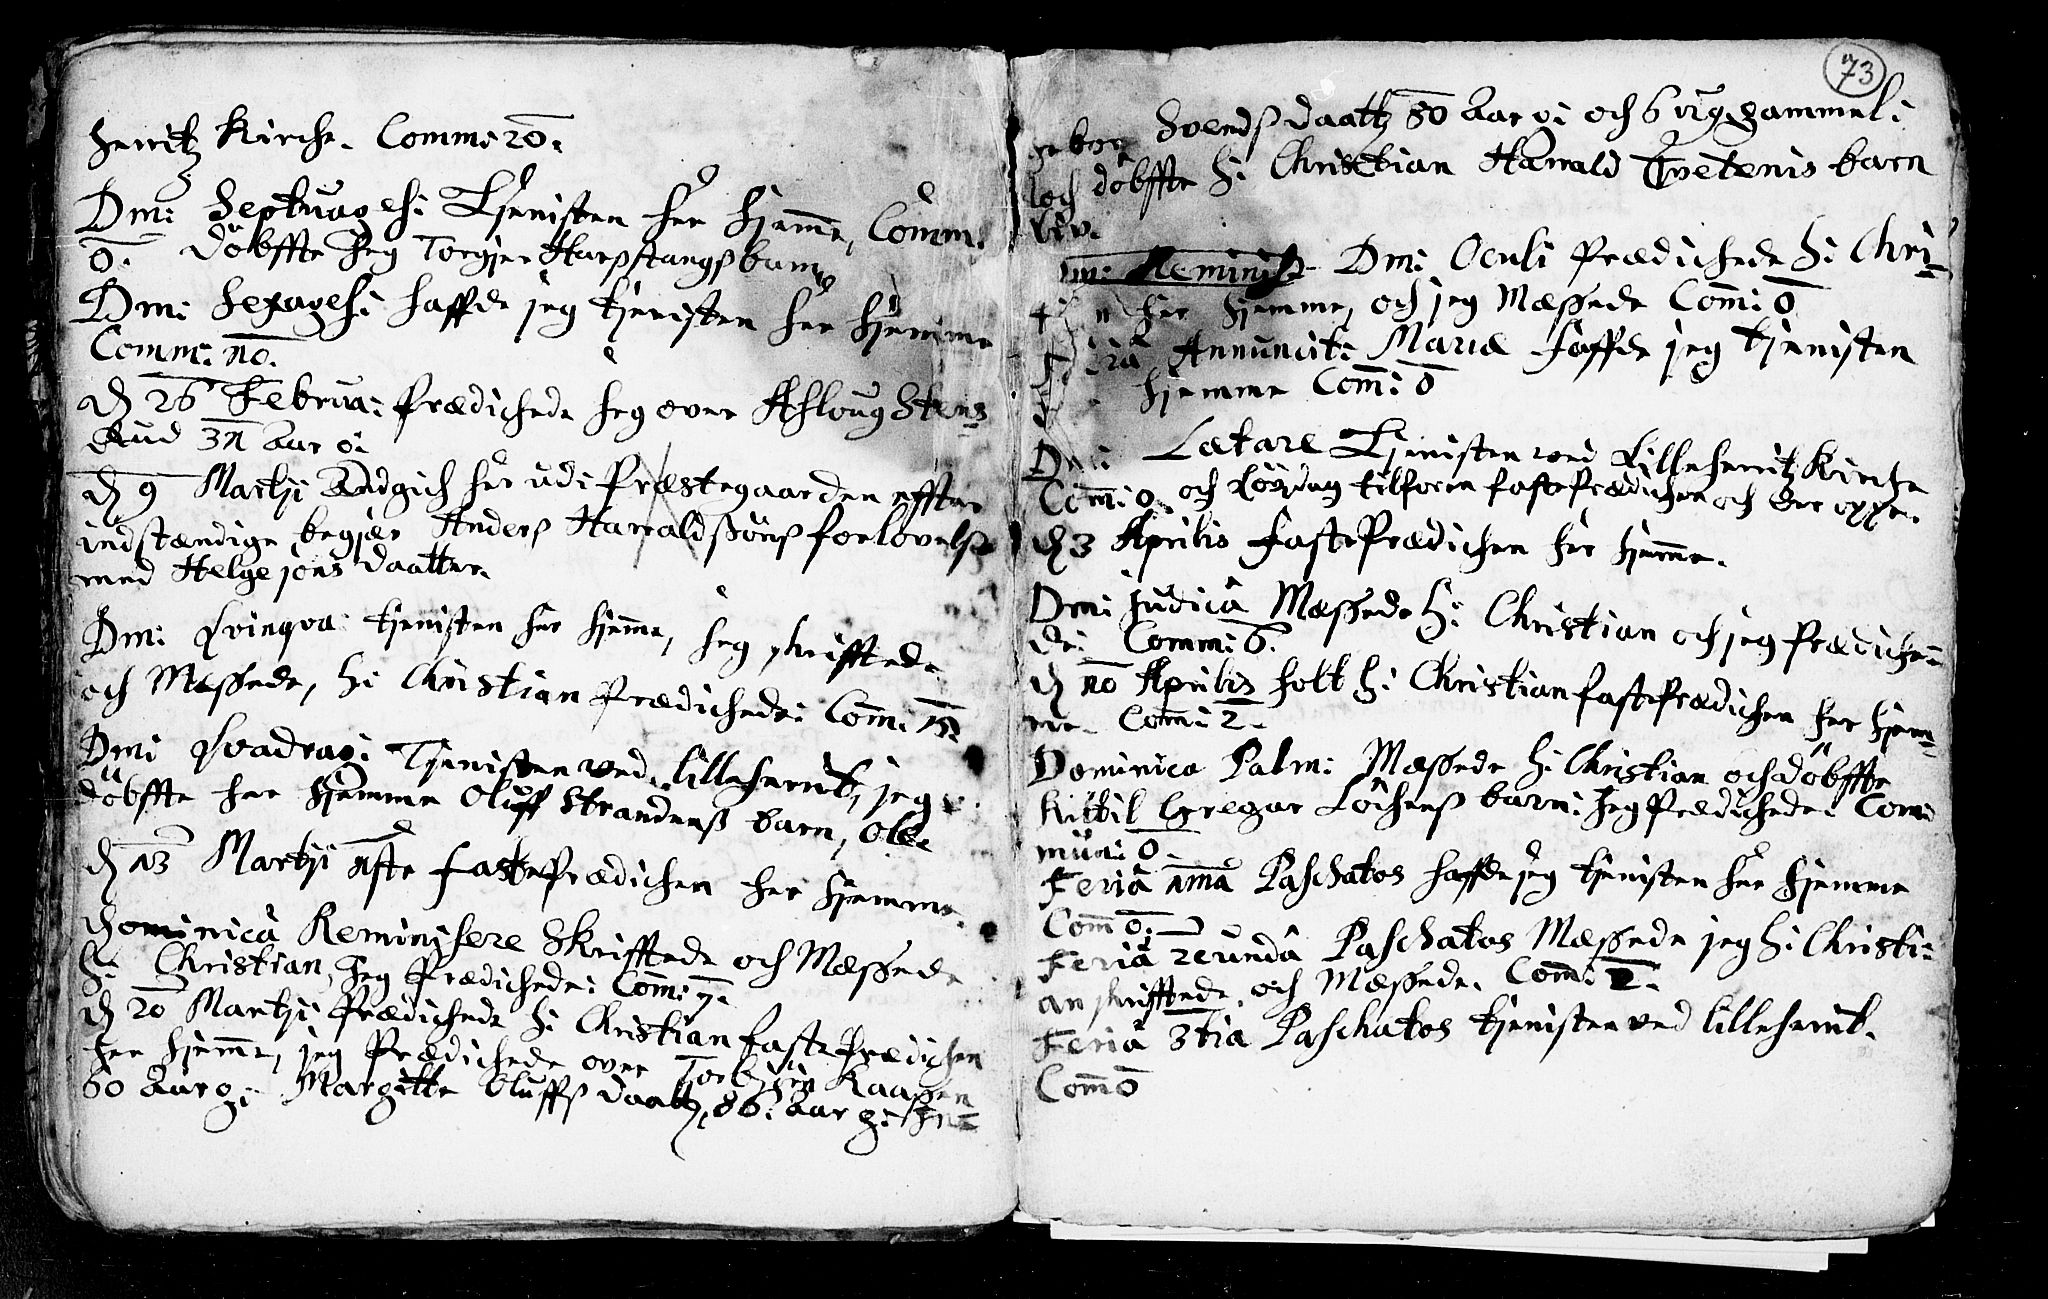 herritz Kirche. Comm: 20.
Dm: Septuages: Tjenisten her hjemme, Comm:
0. döbffte Jeg Torgier Harpstangß barn
Dm: Sexages: haffde jeg tjenisten her hjemme
Comm: no.
D 26 Februa: Prædichede Jeg over Asloug Stens
Rud 3n Aar o:
D 9 Martji Andgich her udi Præstegaarden effter
indstændige begjer Anders Harraldßönß forlovelse
med Helge jons daatter.
Dm: Qvinqva: tjenisten her hjemme, Jeg skrifftede
och Messede, H: Christian Prædichede: Com: 15.
Dm: Qvadrag: Tjenisten ved lilleherrit, jeg
döbffte her hjemme Oluff Strandenß barn, Ole.
D 13 Martji nste fastePrædichen her hjemme.
Dominicâ Reminiscere Skrifftede och Messede
H: Christian, Jeg Prædichede: Com: 7.
D 20 Martji Prædichede H: Christian fastePrædichen
her hjemme, jeg Prædichede over Torbjörn Kaasen
60 Aar g: Margitte Oluffß daatt, 86. Aar g: In=
73
geborg Svendß daatt 80 Aar o: och 6 uger gammel:
och döbffte H: Christian Harrald Tvetenis barn
Liv.
Dm: Reminisc Dm: Oculi Prædichede H: Chri=
stian her hjemme, och jeg Messede Com: 0
Feriâ Annuncit: Mariæ haffde jeg tjenisten
hjemme Com: 0
Dm: Lætare Tjenisten ved Lilleherritz Kirche
Com: 0. och Löverdag tilforn fastePrædichen och der oppe.
D 3 Aprilis fastePrædichen her hjemme.
Dm: Judicâ Messede H: Christian och jeg Prædiche=
de: Comm: 6.
D no Aprilis holt H: Christian fastePrædichen her hjem=
me. Com: 2.
Dominica Palm: Messede H: Christian och döbffte
Kittil Gregar Löchenß barn: Jeg Prædichede: Com=
mun: 0.
Feriâ nmâ Paschatos haffde jeg tjenisten her hjemme
Com 0.
Feriâ 2eundâ Paschatos Messede jeg H: Christi=
an skrifftede, och Messede. Com: 2.
Feriâ 3tia Paschatos tjenisten ved lilleherrit.
Com 0